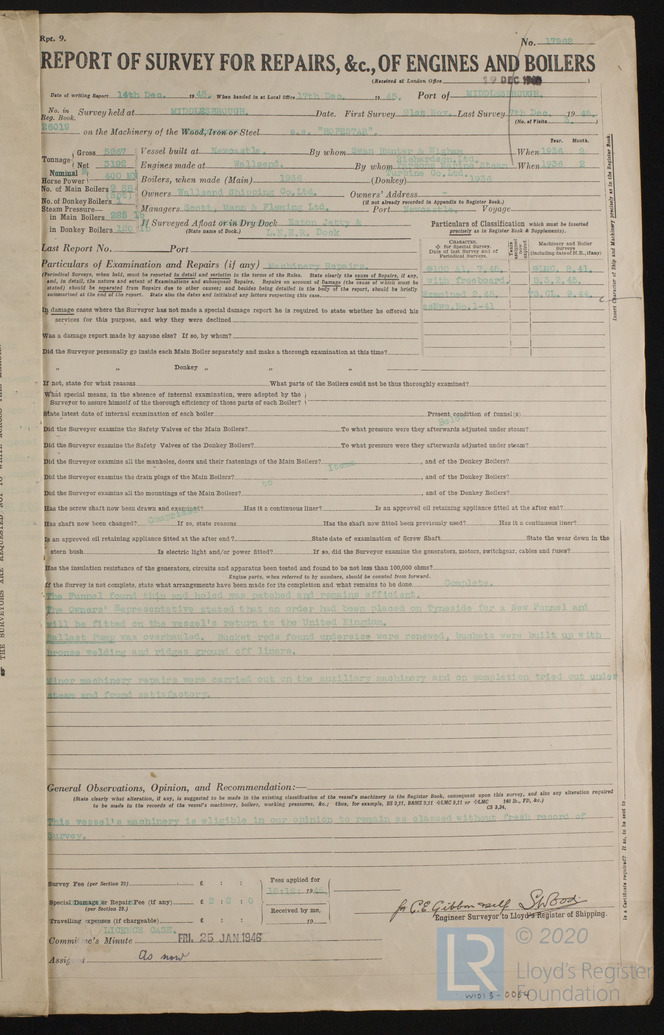 Rpt. 9.
No. 17982
REPORT OF SURVEY FOR REPAIRS, &c., OF ENGINES AND BOILERS
(Received at London Office 19 DEC 1945)
Date of writing Report 14th Dec. 1945. When handed in at Local Office 17th Dec. 1945. Port of MIDDLESBROUGH.
No. in Reg. Book. Survey held at MIDDLESBROUGH. Date. First Survey 21st Nov. Last Survey 7th Dec. 1945.
(No. of Visits 3.)
26019 on the Machinery of the Wood, Iron or Steel s.s. "HOPESTAR".
Tonnage Gross 5267 Vessel built at Newcastle. By whom Swan Hunter & Wigham Richardson Ltd. When 1936 2
Year. Month.
Net 3192 Engines made at Wallsend. By whom Turbine Co. Ltd. When 1936 2
Nominal Horse Power 400 Boilers, when made (Main) 1936 (Donkey) 1936
No. of Main Boilers 2 Owners Wallsend Shipping Co. Ltd. Owners' Address -
(if not already recorded in Appendix to Register Book.)
No. of Donkey Boilers
Steam Pressure in Main Boilers Managers Scott, Mann & Fleming Ltd. Port Newcastle. Voyage
in Donkey Boilers If Surveyed Afloat or in Dry Dock Eaton Jetty &
(State name of Dock.) L.N.E.R. Dock
Particulars of Classification which must be inserted
precisely as in Register Book & Supplements).
Last Report No. Port
CHARACTER.
Machinery and Boiler Surveys
(including date of N.B., if any)
with freeboard.
Examined 2.45.
Particulars of Examination and Repairs (if any) Machinery Repairs.
(Periodical Surveys, when held, must be reported in detail and seriatim in the terms of the Rules. State clearly the cause of Repairs, if any,
and, in detail, the nature and extent of Examinations and subsequent Repairs. Repairs on account of Damage (the cause of which must be
stated) should be separated from Repairs due to other causes; and besides being detailed in the body of the report, should be briefly
summarised at the end of the report. State also the dates and initials of any letters respecting this case.
In damage cases where the Surveyor has not made a special damage report he is required to state whether he offered his
services for this purpose, and why they were declined
Was a damage report made by anyone else? If so, by whom?
Did the Surveyor personally go inside each Main Boiler separately and make a thorough examination at this time?
" " Donkey " " "
If not, state for what reasons What parts of the Boilers could not be thus thoroughly examined?
What special means, in the absence of internal examination, were adopted by the
Surveyor to assure himself of the thorough efficiency of those parts of each Boiler?
State latest date of internal examination of each boiler Present condition of funnel(s) Below
Did the Surveyor examine the Safety Valves of the Main Boilers? To what pressure were they afterwards adjusted under steam?
Did the Surveyor examine the Safety Valves of the Donkey Boilers? To what pressure were they afterwards adjusted under steam?
Did the Surveyor examine all the manholes, doors and their fastenings of the Main Boilers? Items , and of the Donkey Boilers?
Did the Surveyor examine the drain plugs of the Main Boilers? , and of the Donkey Boilers?
Did the Surveyor examine all the mountings of the Main Boilers? , and of the Donkey Boilers?
Has the screw shaft now been drawn and examined? Has it a continuous liner? Is an approved oil retaining appliance fitted at the after end?
Has shaft now been changed? If so, state reasons Has the shaft now fitted been previously used? Has it a continuous liner?
Is an approved oil retaining appliance fitted at the after end? State date of examination of Screw Shaft State the wear down in the
stern bush Is electric light and/or power fitted? If so, did the Surveyor examine the generators, motors, switchgear, cables and fuses?
Has the insulation resistance of the generators, circuits and apparatus been tested and found to be not less than 100,000 ohms?
Engine parts, when referred to by numbers, should be counted from forward.
If the Survey is not complete, state what arrangements have been made for its completion and what remains to be done Complete.
The Funnel found thin and holed was patched and remains efficient.
The Owners' Representative stated that an order had been placed on Tyneside for a New Funnel and
will be fitted on the vessel's return to the United Kingdom.
Ballast Pump was overhauled. Bucket rods found undersize were renewed, buckets were built up with
bronze welding and ridges ground off liners.
Minor machinery repairs were carried out on the auxiliary machinery and on completion tried out under
steam and found satisfactory.
General Observations, Opinion, and Recommendation:—
(State clearly what alteration, if any, is suggested to be made in the existing classification of the vessel's machinery in the Register Book, consequent upon this survey, and also any alteration required
to be made in the records of the vessel's machinery, boilers, working pressures, &c.; thus, for example, BS 9,11, B&MS 9,11 or LMC 9,11 or LMC 140 lb., FD, &c.)
CS 3,34,
This vessel's machinery is eligible in our opinion to remain as classed without fresh record of
Survey.
Survey Fee (per Section 29) £ : : Fees applied for
Special Damage or Repair Fee (if any) £ : : 18:12: 1945
(per Section 29.) Received by me,
Travelling expenses (if chargeable) £ : : 19
for C.E. Gibbon & self S. Wood
Engineer Surveyor to Lloyd's Register of Shipping.
LICENCE CASE.
Committee's Minute FRI. 25 JAN 1946
Assigned As now
Insert Character of Ship and Machinery precisely as in the Register Book.
© 2020
LR
Lloyd's Register
Foundation
W1013-0064